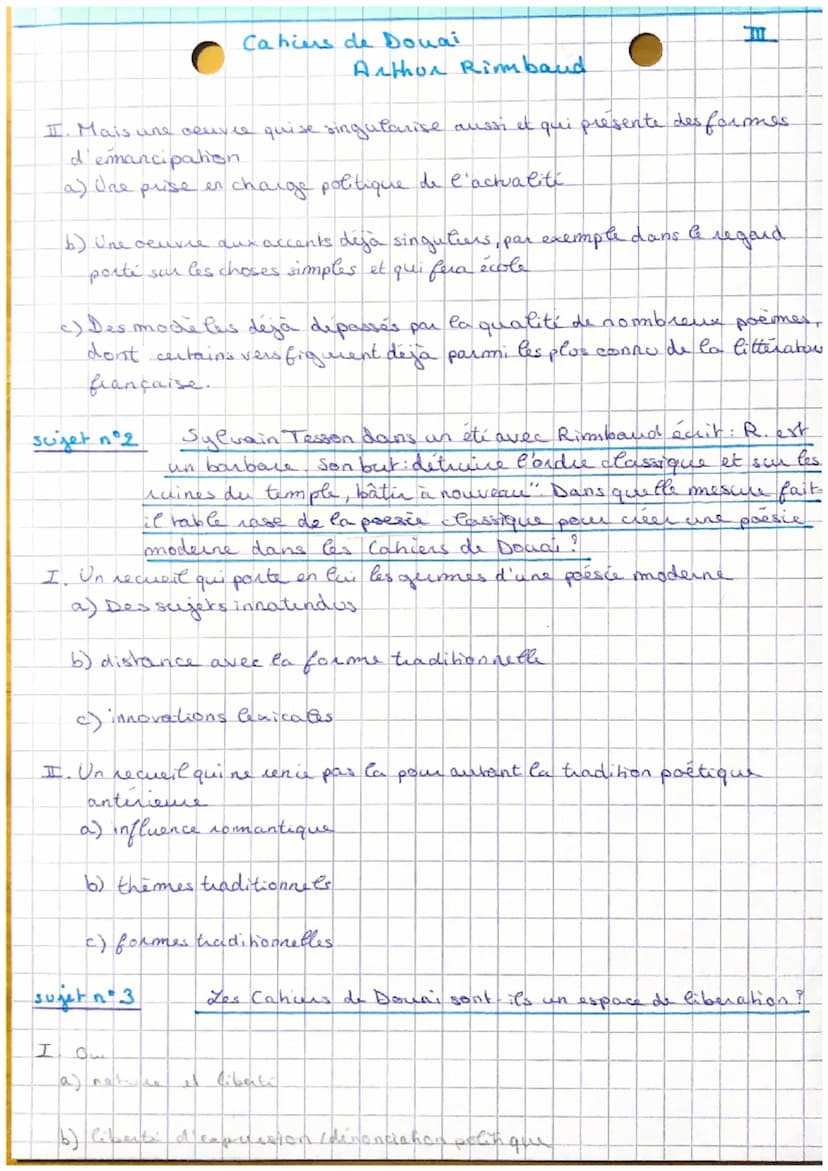 Cahiers de Douai
III
Arthur Rimbaud
II. Mais une oeuvre qui se singularise aussi et qui présente des formes
d'émancipation
a) Une prise en charge politique de l'actualité
b) Une oeuvre aux accents déjà singuliers, par exemple dans le regard
porté sur les choses simples et qui fera école
c) Des modèles déjà dépassés par la qualité de nombreux poèmes,
dont certains vers figurent déjà parmi les plus connu de la littératu
française.
sujet n°2 Sylvain Tesson dans un été avec Rimbaud écrit : R. est
un barbare. Son but : détruire l'ordre classique et sur les
ruines du temple, bâtir à nouveau". Dans quelle mesure fait-
il table rase de la poésie classique pour créer une poésie
moderne dans les Cahiers de Douai ?
I. Un recueil qui porte en lui les germes d'une poésie moderne
a) Des sujets innatendus
b) distance avec la forme traditionnelle
c) innovations lexicales
II. Un recueil qui ne renie pas la pour autant la tradition poétique
antérieure
a) influence romantique
b) thèmes traditionnels
c) formes traditionnelles
sujet n°3 Les Cahiers de Douai sont-ils un espace de libération ?
I. Oui
a) nature et liberté
b) liberté d'expression / dénonciation politique